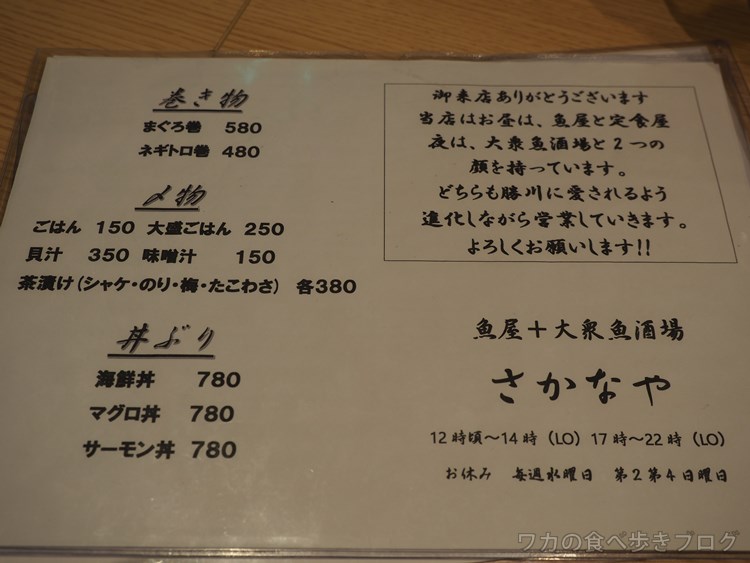 巻き物
まぐろ巻 580
ネギトロ巻 480
〆物
ごはん 150 大盛ごはん 250
貝汁 350 味噌汁 150
茶漬け(シャケ・のり・梅・たこわさ) 各380
丼ぶり
海鮮丼 780
マグロ丼 780
サーモン丼 780
御来店ありがとうございます
当店はお昼は、魚屋と定食屋
夜は、大衆魚酒場と2つの
顔を持っています。
どちらも勝川に愛されるよう
進化しながら営業していきます。
よろしくお願いします!!
魚屋+大衆魚酒場
さかなや
12時頃～14時(LO) 17時～22時(LO)
お休み 毎週水曜日 第2第4日曜日
ワカの食べ歩きブログ